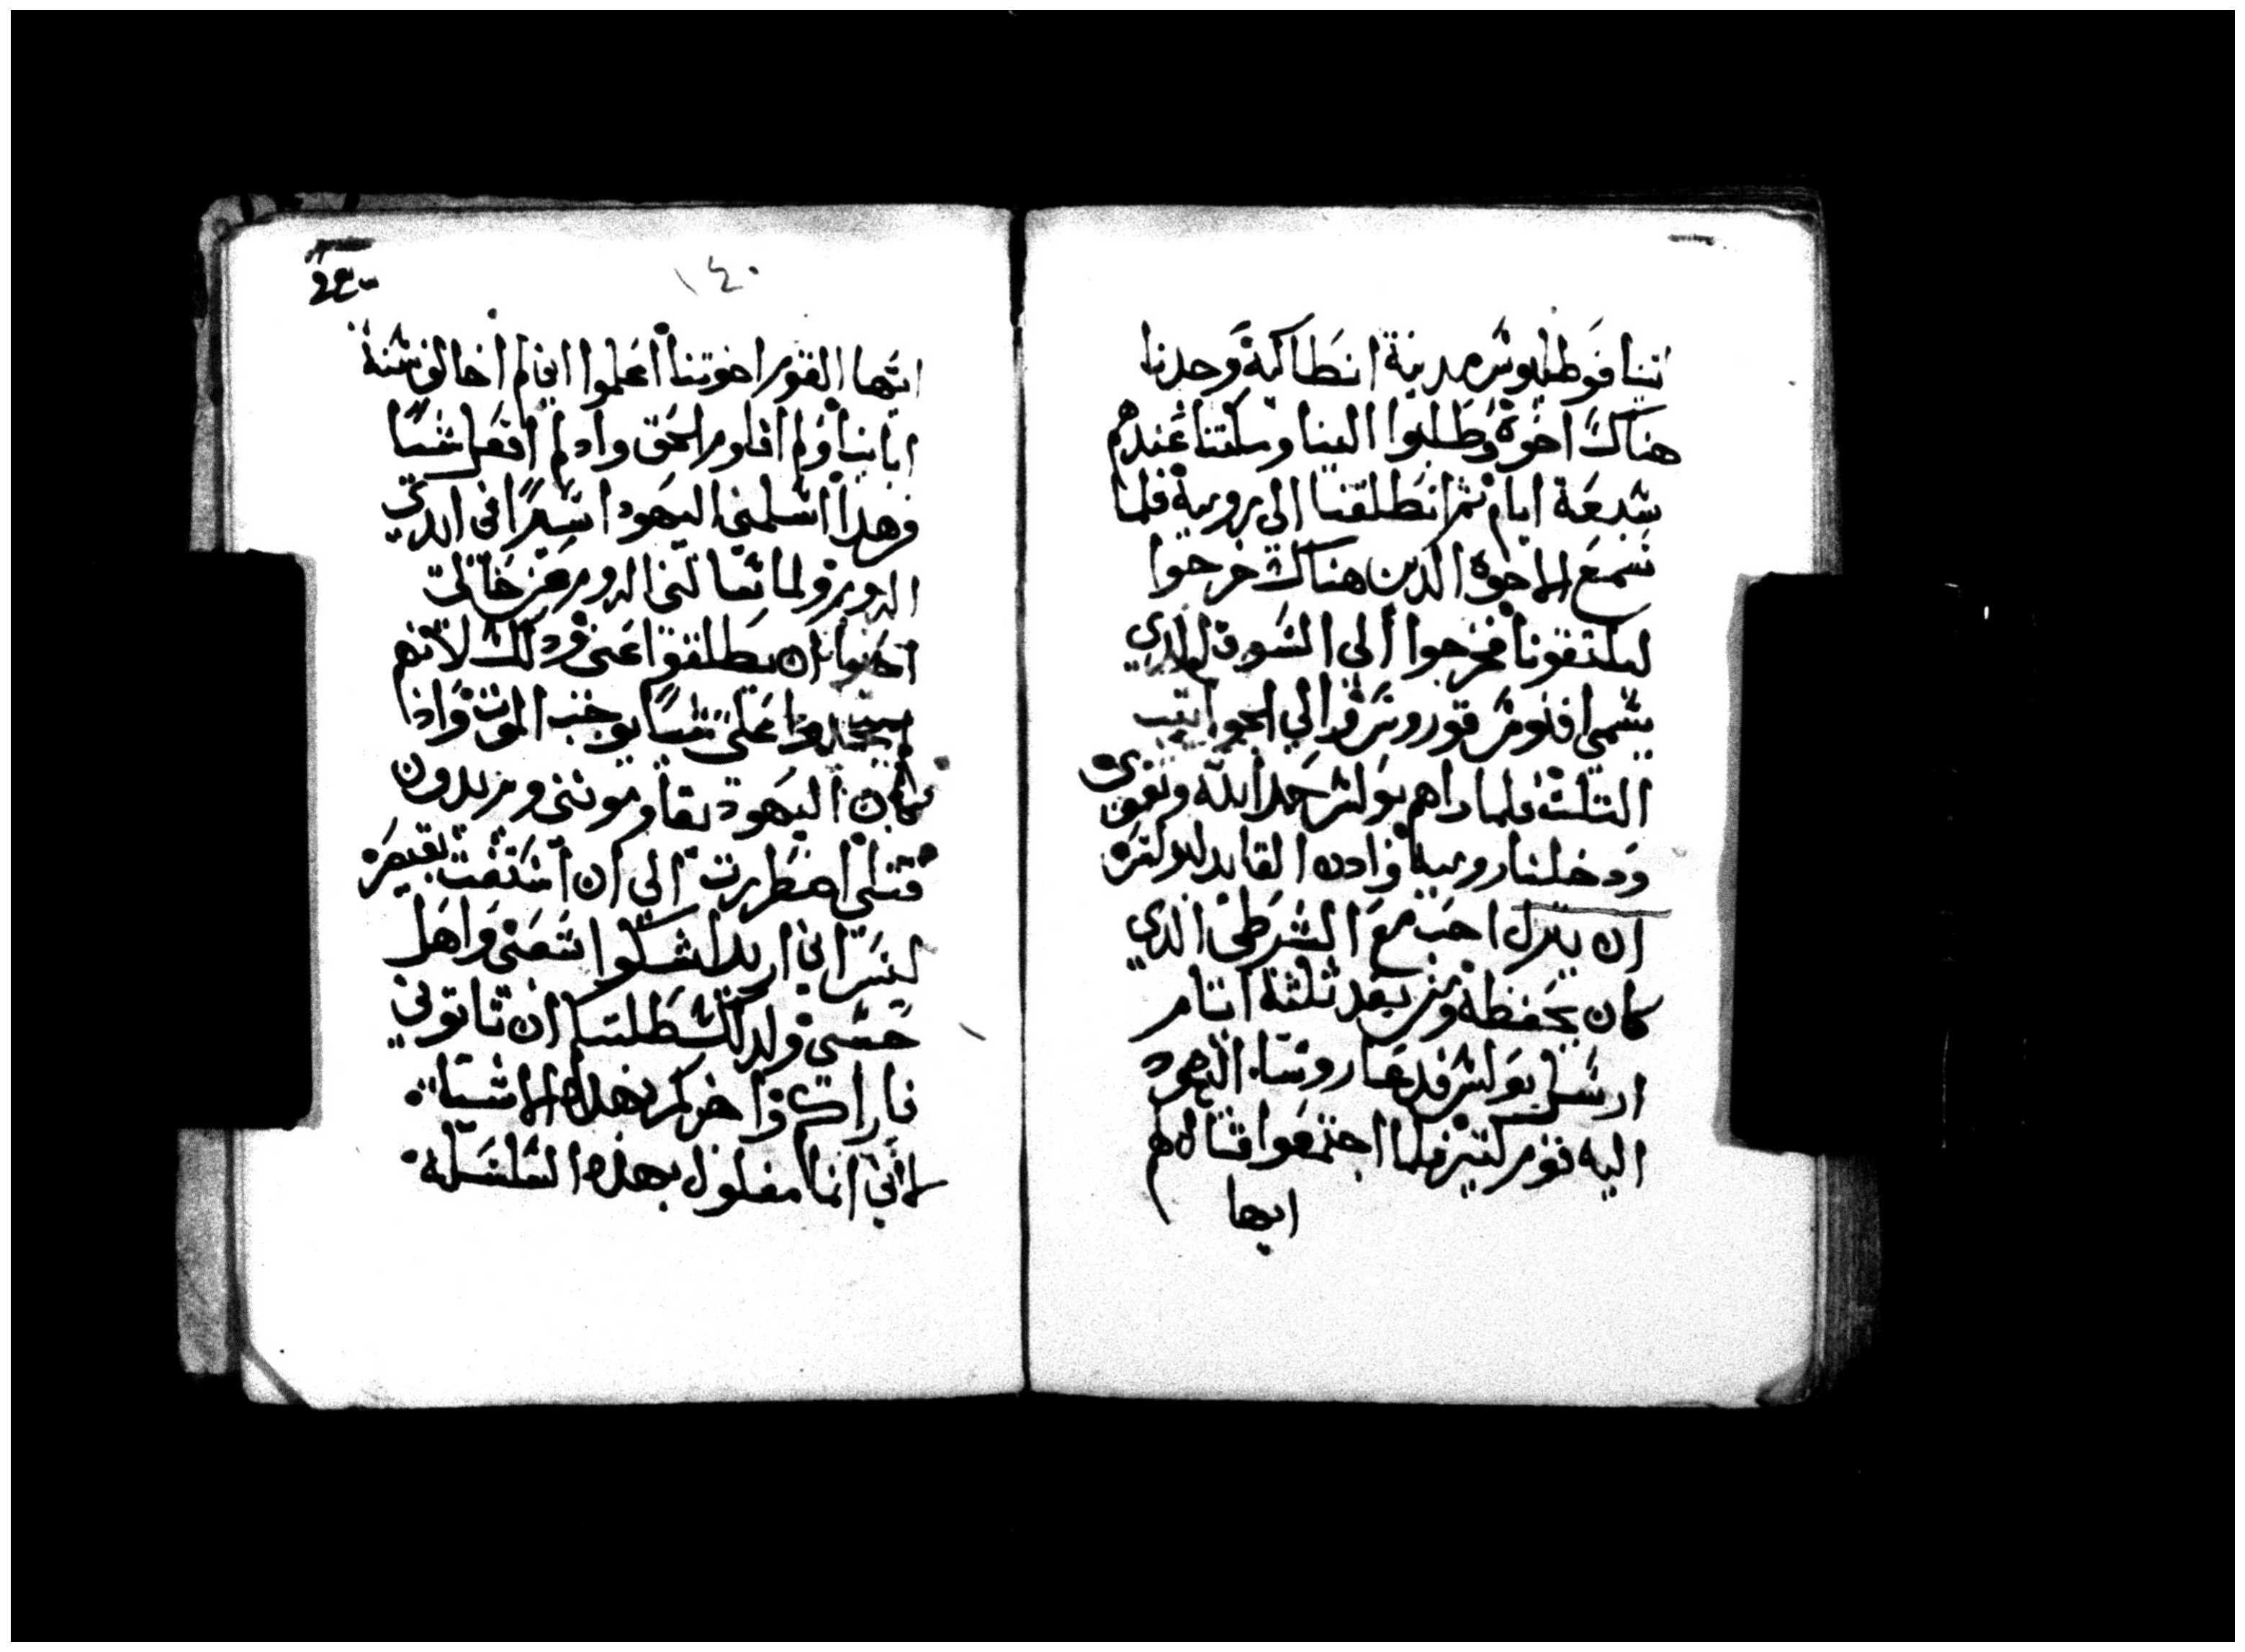 اتينا فوطيلوس مدينة انطاكية وجدنا
هناك اخوة وطلبوا الينا وسكنا عندهم
سبعة ايام ثم انطلقنا الى رومية فلما
سمع الاخوة الذين هناك خرجوا
ليلتقونا فخرجوا الى السوق الذي
يسمى افيوس فوروس والي الحوانيت
التلت فلما راهم بولس حمد الله وتقوى
ودخلنا رومية واذن القايد لبولس
ان ينزل احب مع الشرطي الذي
كان يحفظه ومن بعد ثلثة ايام
ارسل بولس فدعا روسا اليهود
اليه قوم كثير فلما اجتمعوا قال لهم
ايها
١٤٠
ايها القوم اخوتنا اعلموا اني لم اخالف سنة
اباينا ولم اقاوم الحق واد لم افعل شيا
من هدا اسلمني اليهود اسيرا في ايدي
الروم ولما سالني الروم عن حالي
احبوا ان يطلقوا عني ودلك لانهم
لم يجدوا على شيا يوجب الموت واذ
كان اليهود يقاومونني ويريدون
قتلي اضطررت الى ان استغثت بقيصر
ليس اني اريد اشكوا شعبي واهل
جنسي ولدلك طلبت ان تاتوني
فاراكم واخبركم بهده الاشيا
لاني انما مغلول بهذه السلسلة